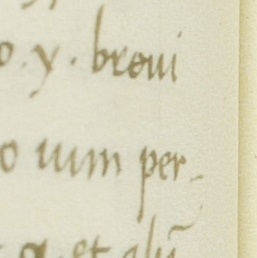 o . y . breui
o uim per-
g. et aliū